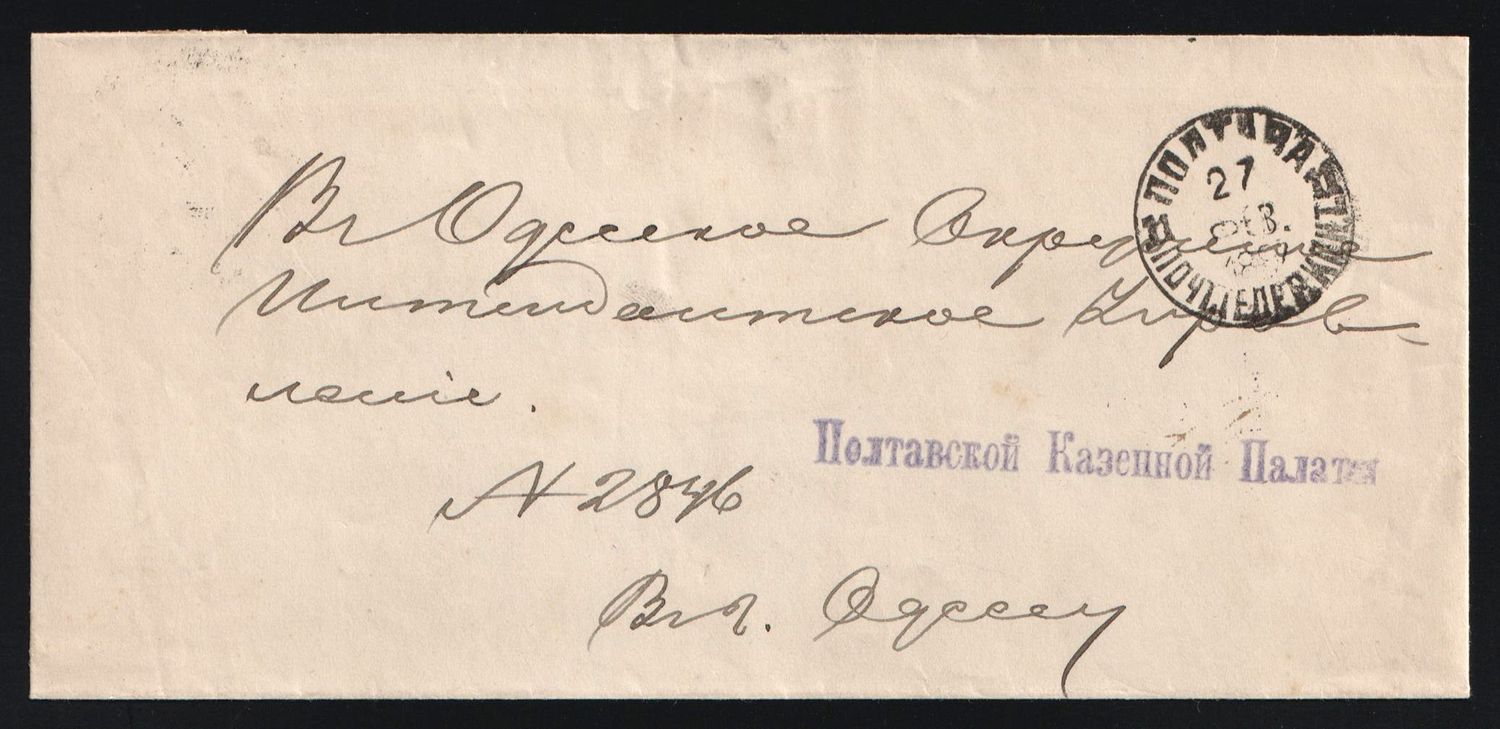 ПОЛТАВА
27
ФЕВ.
ПОЧ. ТЕЛЕГР.
Въ Одесское Окружное
Интендантское Управ-
леніе.
Полтавской Казенной Палаты
№ 2846
Въ г. Одессу